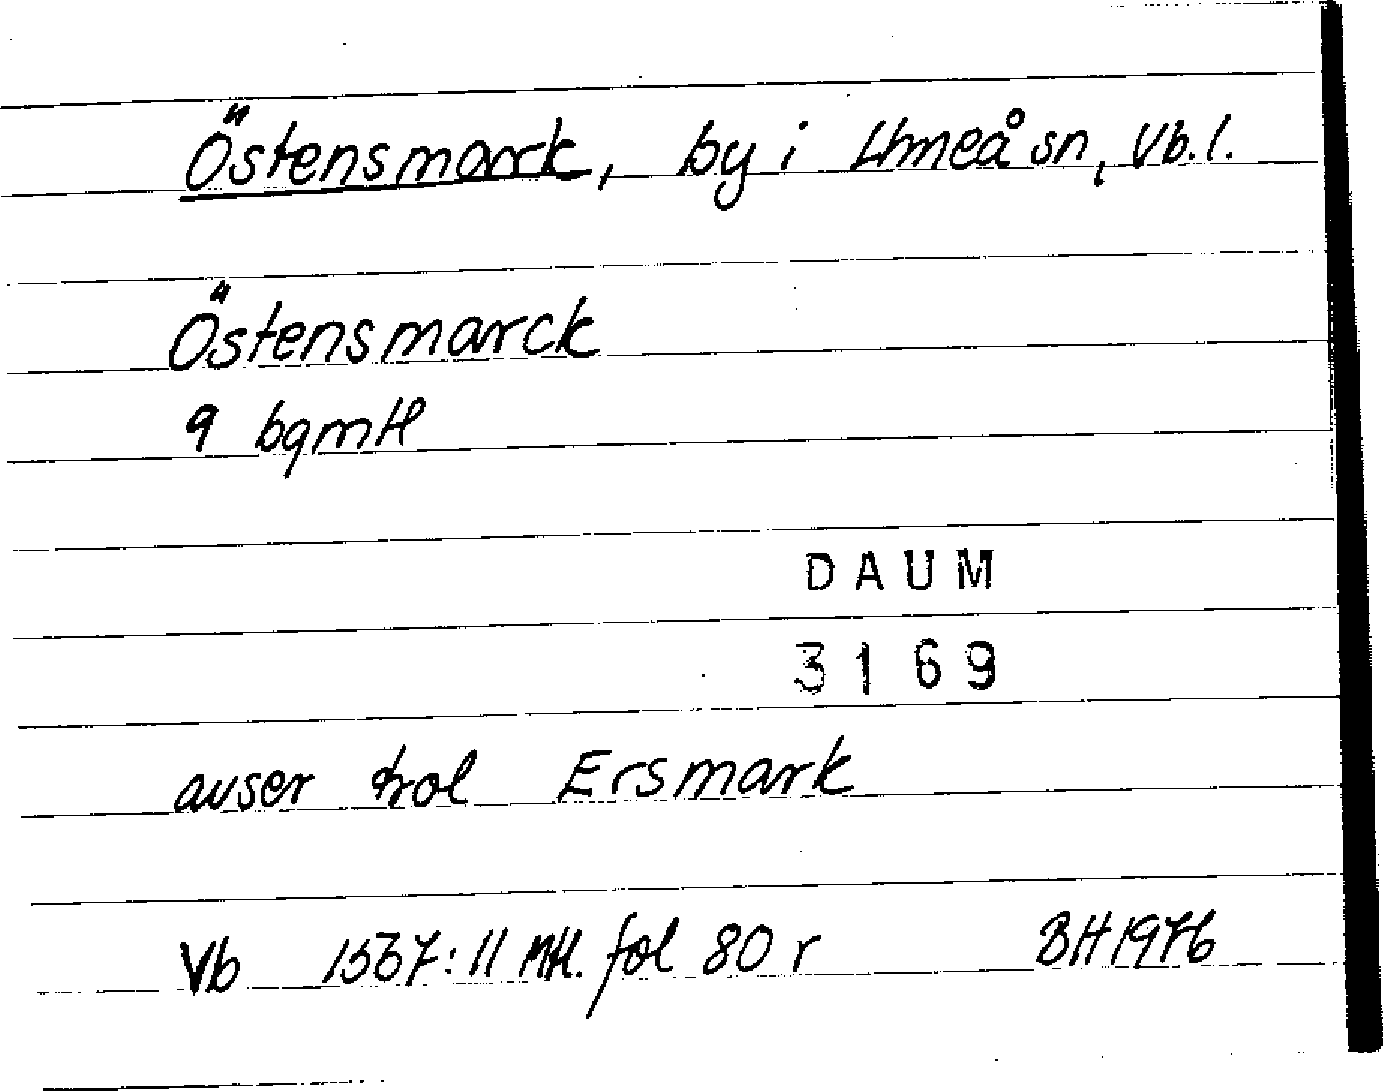 Östensmarck, by i Umeå sn, Vb.l.
Östensmarck
9 bgmH
DAUM
3169
avser trol Ersmark
Vb 1567:11 Mtl. fol 80 r BH1976